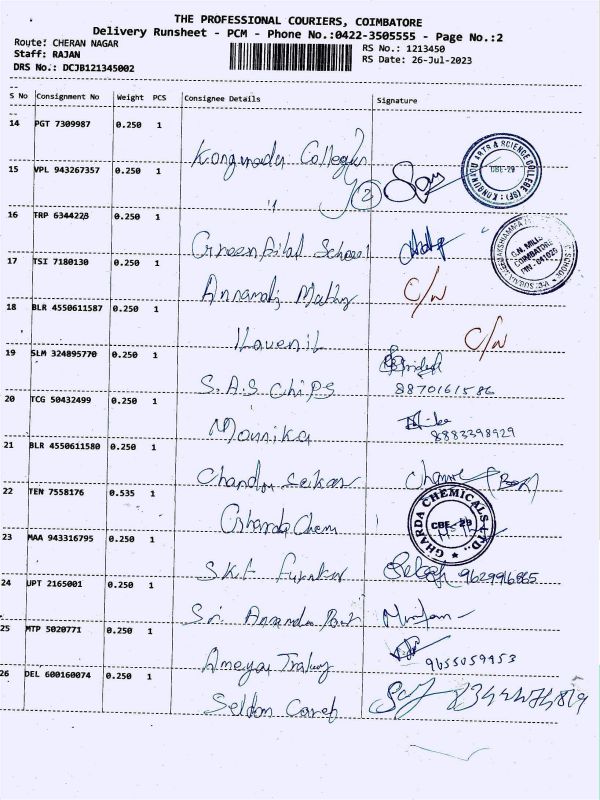 THE PROFESSIONAL COURIERS, COIMBATORE
Delivery Runsheet - PCM - Phone No.:0422-3505555 - Page No.:2
Route: CHERAN NAGAR RS No.: 1213450
Staff: RAJAN RS Date: 26-Jul-2023
DRS No.: DCJB121345002
S No Consignment No Weight PCS Consignee Details Signature
14 PGT 7309987 0.250 1 Kongunadu
15 VPL 943267357 0.250 1 " 2
KONGUNADU ARTS & SCIENCE COLLEGE
CBE-29
16 TRP 6344223 0.250 1 Green School
G.N. MILLS
COIMBATORE
PIN - 641029
17 TSI 7180130 0.250 1 C/N
18 BLR 4550611587 0.250 1 Ilavenil C/N
19 SLM 324895770 0.250 1 S.A.S Chips
8870161586
20 TCG 50432499 0.250 1 Mounika
8883398929
21 BLR 4550611580 0.250 1
22 TEN 7558176 0.535 1 Gharda Chem
GHARDA CHEMICALS LTD.,
CBE-29
23 MAA 943316795 0.250 1 9629916865
24 UPT 2165001 0.250 1 Sri
25 MTP 5020771 0.250 1 Ameya
9655059953
26 DEL 600160074 0.250 1